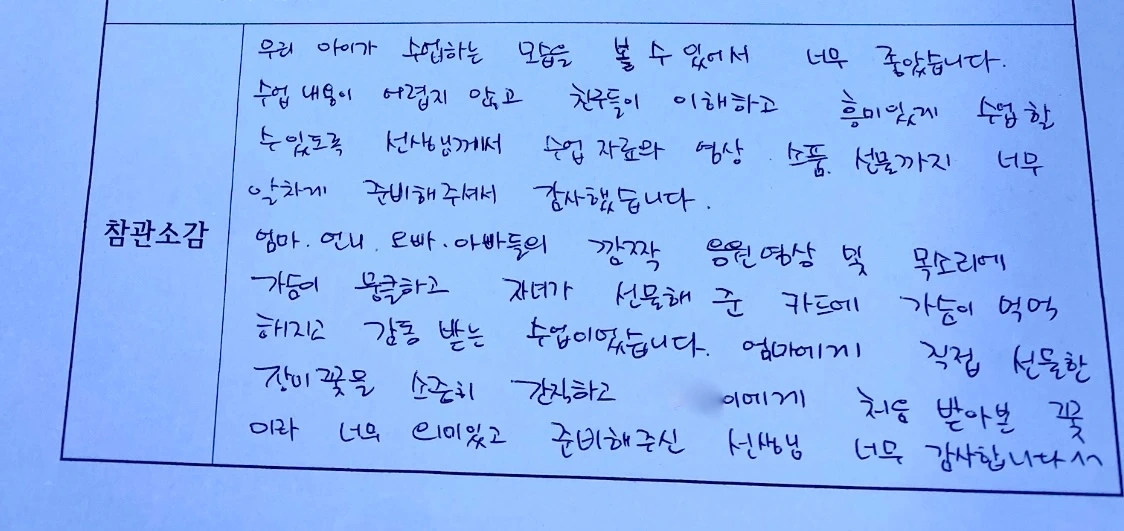 우리 아이가 수업하는 모습을 볼 수 있어서 너무 좋았습니다.
수업 내용이 어렵지 않고 친구들이 이해하고 흥미있게 수업할
수있도록 선생님께서 수업 자료와 영상. 소품. 선물까지 너무
알차게 준비해주셔서 감사했습니다.
참관소감
엄마. 언니. 오빠. 아빠들의 깜짝 응원영상 및 목소리에
가슴이 뭉클하고 자녀가 선물해 준 카드에 가슴이 먹먹
해지고 감동 받는 수업이었습니다. 엄마에게 직접 선물한
장미꽃을 소중히 간직하고 이에게 처음 받아본 꽃
이라 너무 의미있고 준비해주신 선생님 너무 감사합니다^^